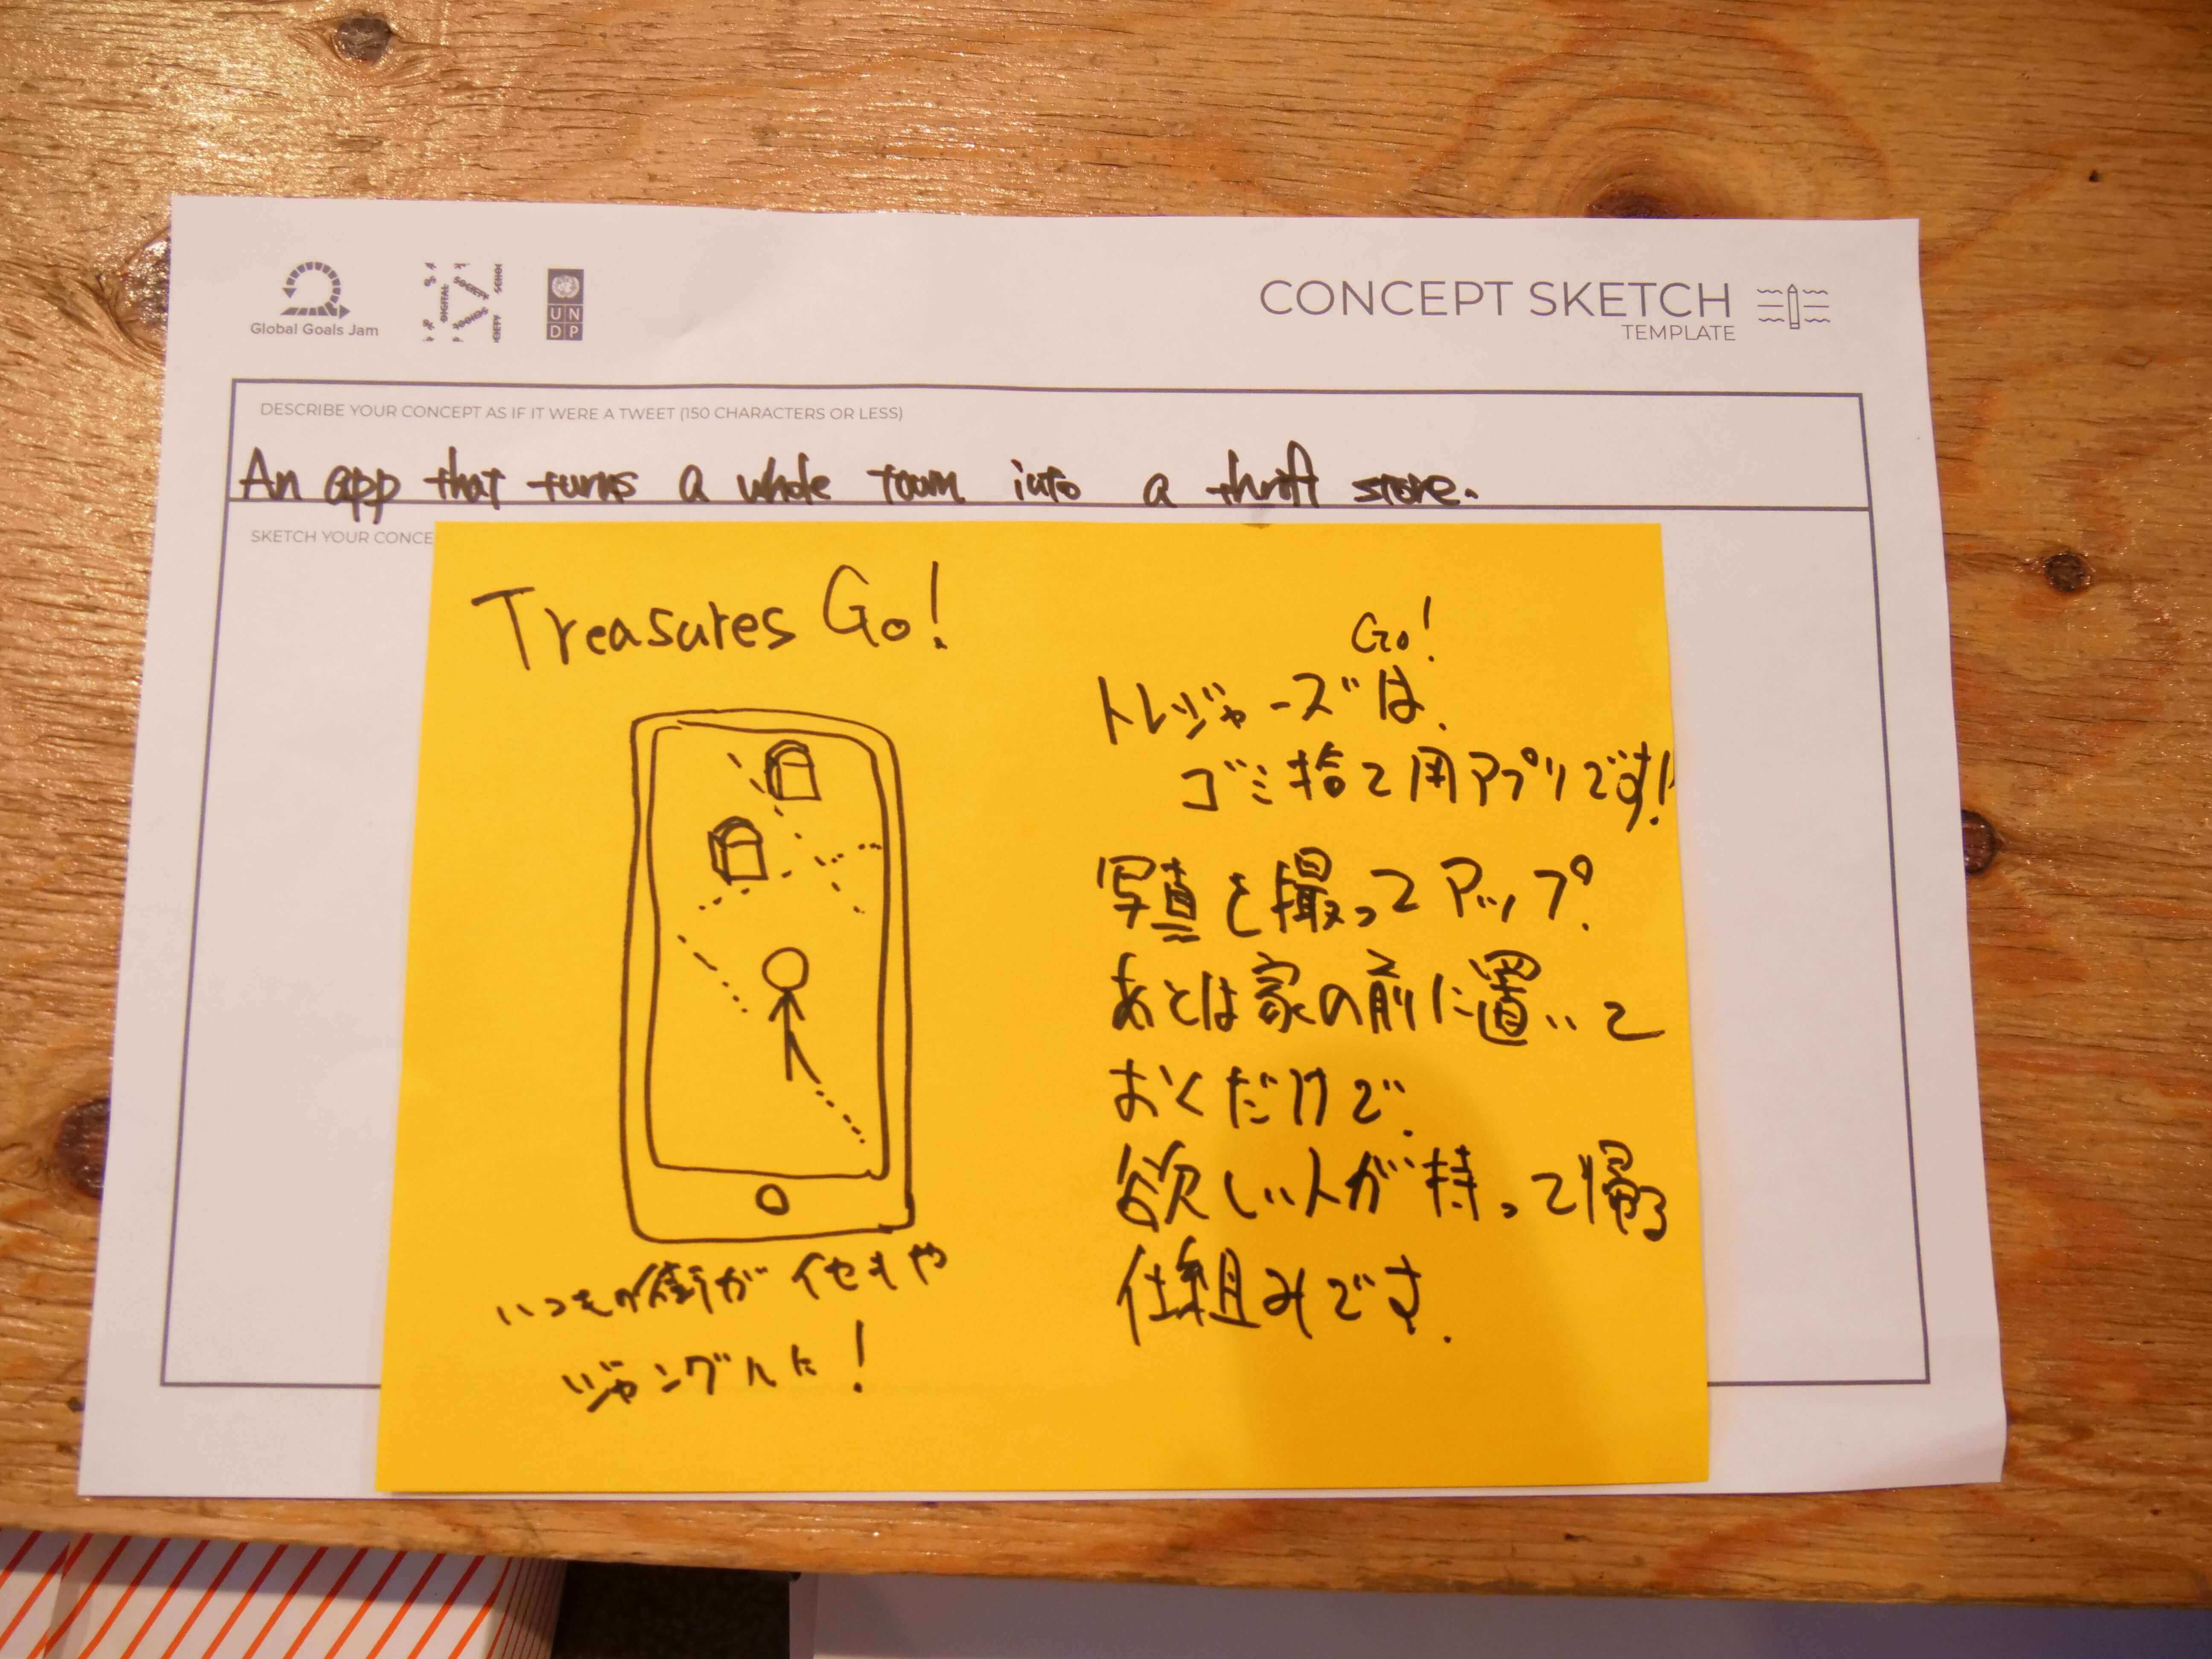 Global Goals Jam
DIGITAL SOCIETY SCHOOL
UN
DP
CONCEPT SKETCH
TEMPLATE
DESCRIBE YOUR CONCEPT AS IF IT WERE A TWEET (150 CHARACTERS OR LESS)
An app that turns a whole town into a thrift store.
SKETCH YOUR CONCE
Treasures Go!
いつもの街が
ジャングルに!
Go!
トレジャーズは、
ゴミ捨て用アプリです!
写真を撮ってアップ。
あとは家の前に置いて
おくだけで、
欲しい人が持って帰る
仕組みです.